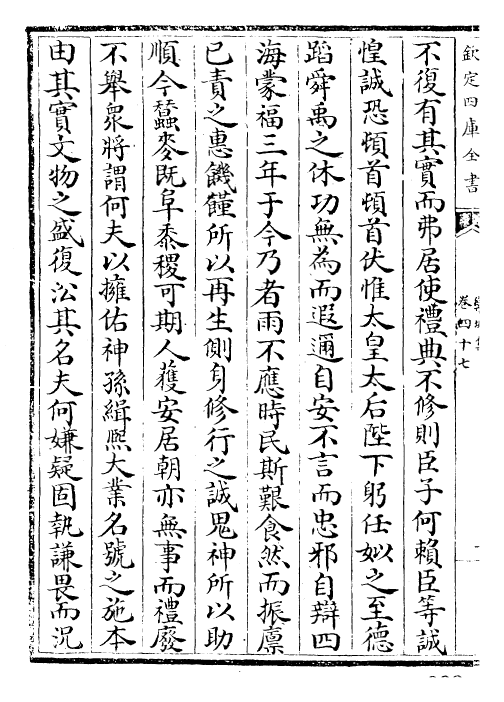 欽定四庫全書
卷四十七
不復有其實而弗居使禮典不修則臣子何賴臣等誠
惶誠恐頓首頓首伏惟太皇太后陛下躬任姒之至德
蹈舜禹之休功無為而遐邇自安不言而忠邪自辯四
海蒙福三年于今乃者雨不應時民斯艱食然而振廪
已責之惠饑饉所以再生側身修行之誠鬼神所以助
順今蠶麥既阜黍稷可期人獲安居朝亦無事而禮廢
不舉衆將謂何夫以擁佑神孫緝熈大業名號之施本
由其實文物之盛復㳂其名夫何嫌疑固執謙畏而況